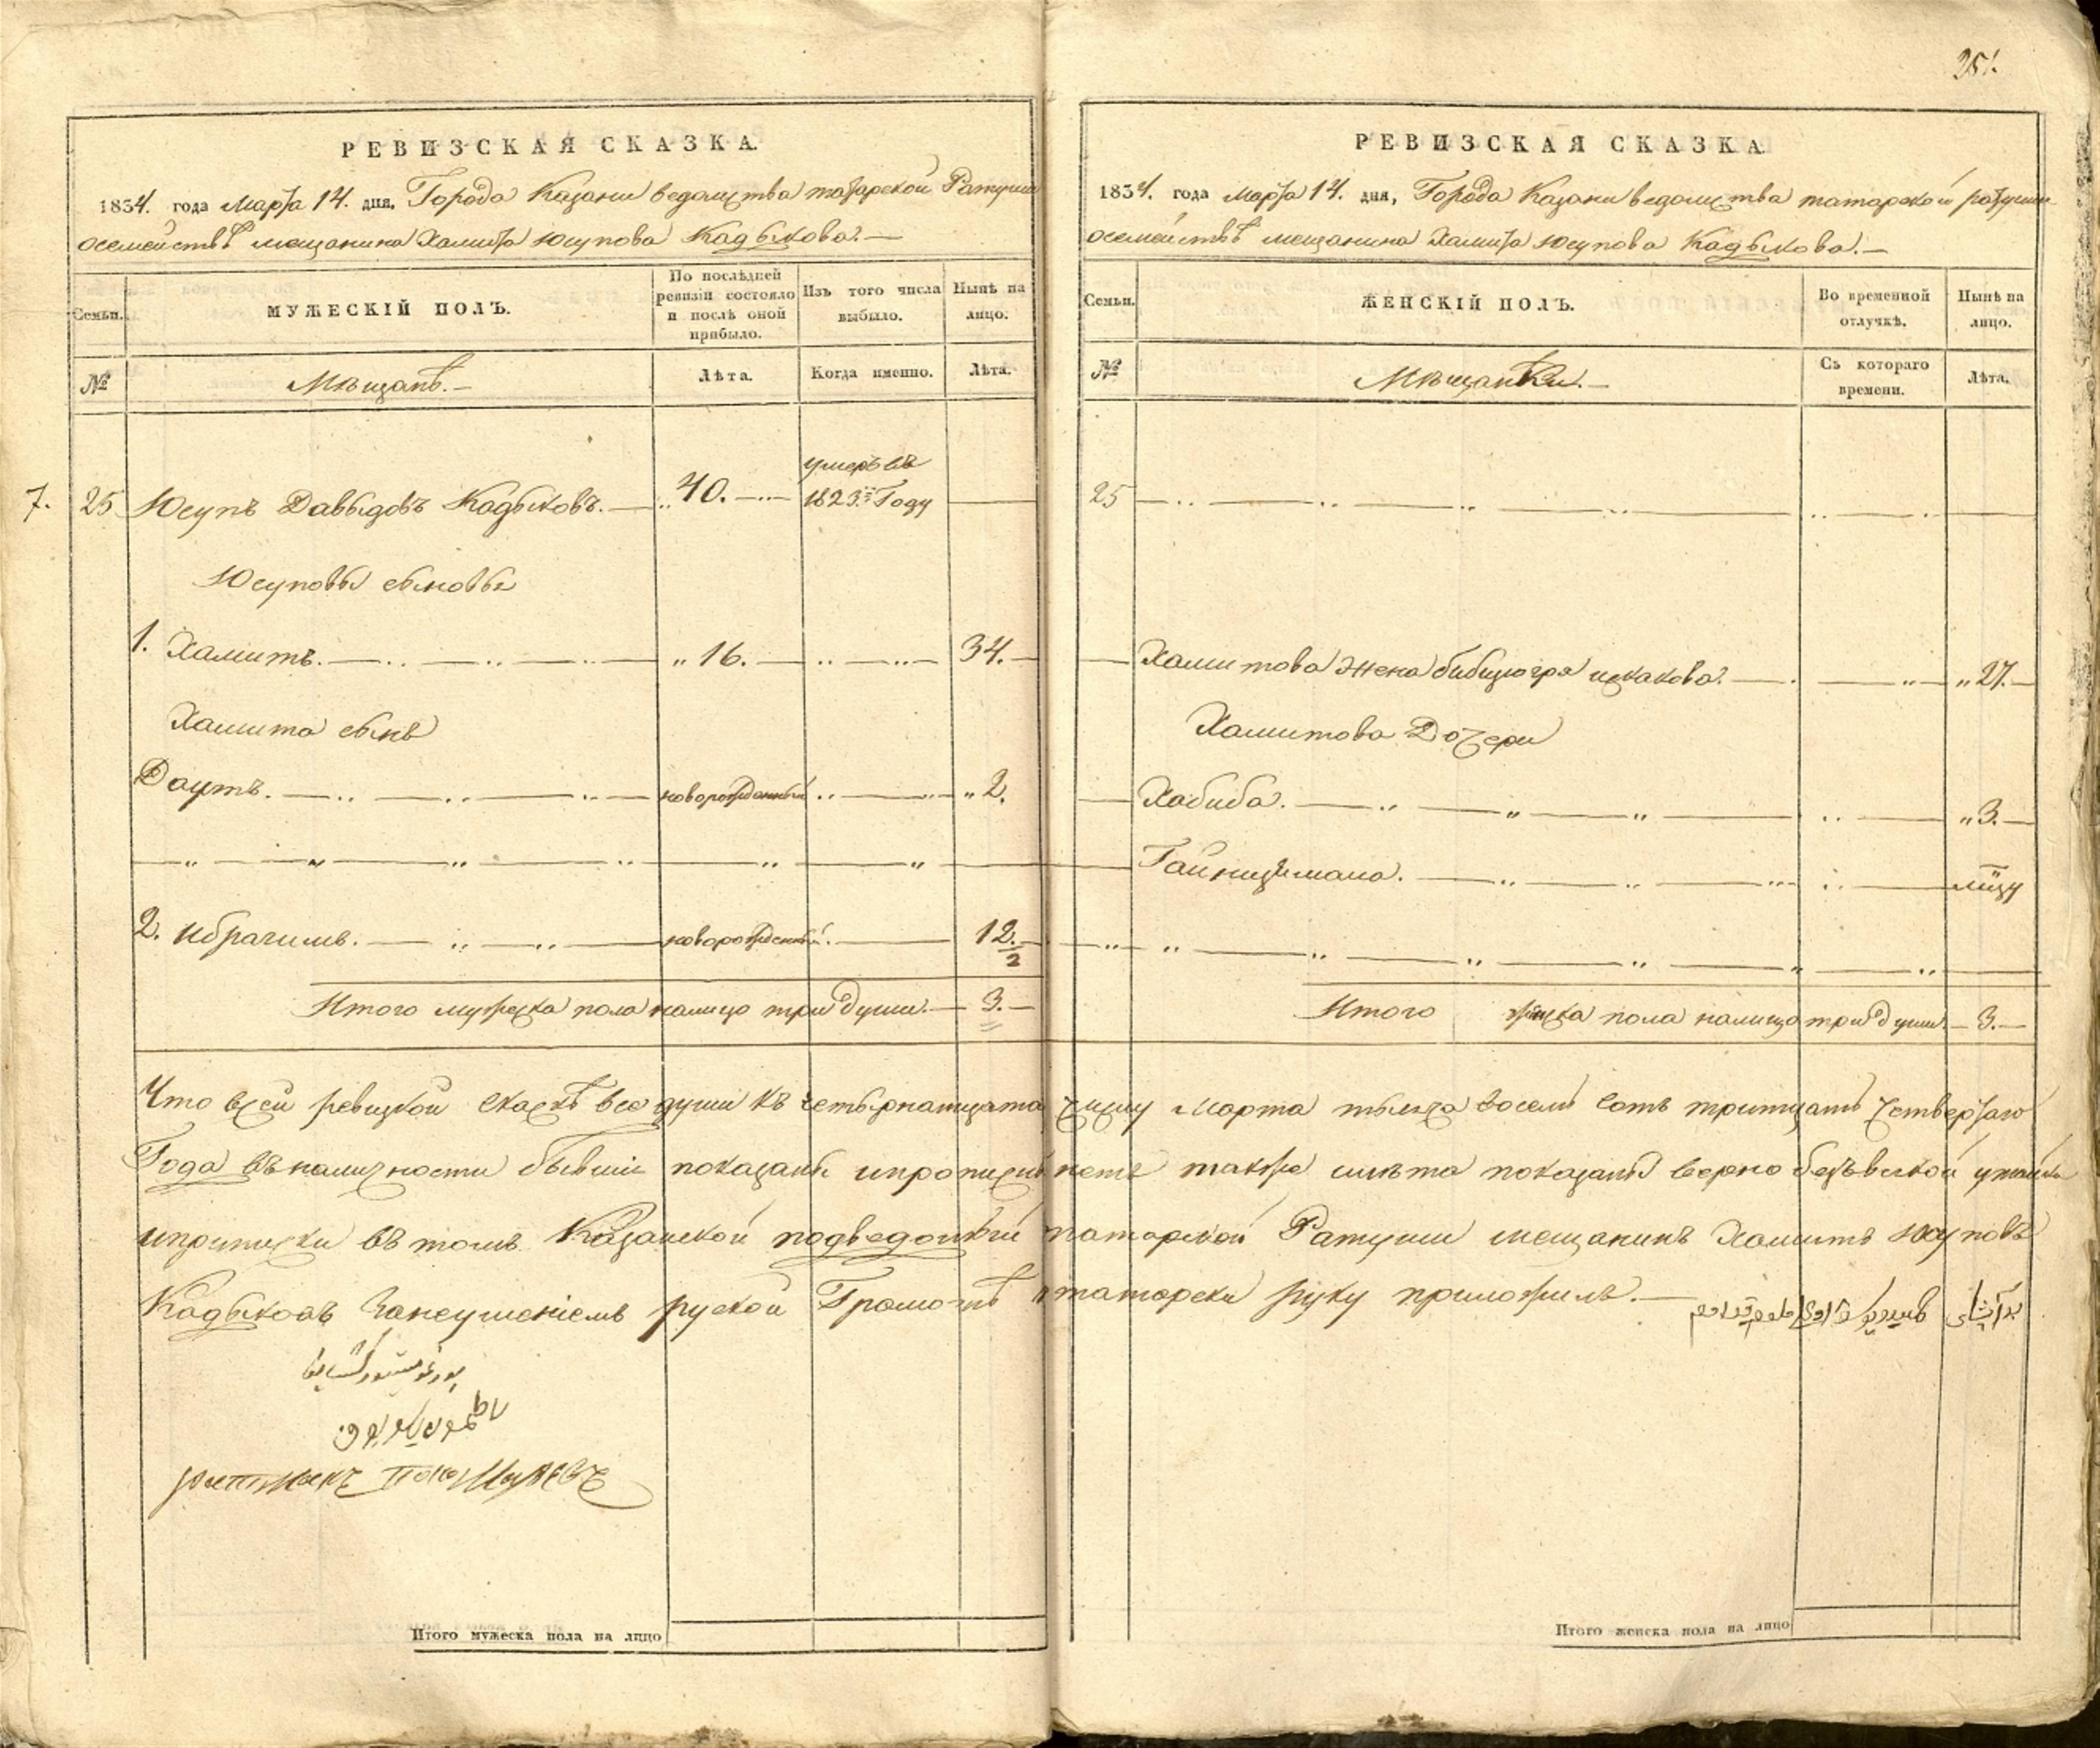 251.
РЕВИЗСКАЯ СКАЗКА.
1834. года Марта 14. дня, Города Казани ведомства татарской Ратуши
осемействѣ мещанина Хамита Юсупова Кадыкова. —
Семьи.
МУЖЕСКІЙ ПОЛЪ.
По послѣдней ревизіи состояло и послѣ оной прибыло.
Изъ того числа выбыло.
Нынѣ на лицо.
№
Мѣщанѣ. —
Лѣта.
Когда именно.
Лѣта.
7. 25 Юсупъ Давыдовъ Кадыковъ. — 40. — умеръ въ 1823.м Году
Юсуповы сыновья
1. Хамитъ. — 16. — 34. —
Хамита сынъ
Даутъ. — новорожденный „ 2.
2. Ибрагимъ. — новорожденный. — 12. —
2
Итого мужеска пола налицо три души. — 3. —
РЕВИЗСКАЯ СКАЗКА
1834. года Марта 14. дня, Города Казани ведомства татарской ратуши
осемействѣ мещанина Хамита Юсупова Кадыкова. —
Семьи.
ЖЕНСКІЙ ПОЛЪ.
Во временной отлучкѣ.
Нынѣ на лицо.
№
Мѣщанки. —
Съ котораго времени.
Лѣта.
25
Хамитова жена Исхакова. — „ 27. —
Хамитова Дочери
Хабиба. — „ 3. —
Итого женска пола налицо три души — 3. —
Что всей ревизкой скаскѣ все души къ четырнатцата числу Марта тысяча восемь сотъ тритцать четвертаго
Года въ наличности бывшіе показаны ипропискы нетъ также илѣта показаны верно безъ всякой утайки
иприписки въ томъ Казанской подведомый татарской Ратуши мещанинъ Хамитъ Юсуповъ
Кадыковъ Занеумениемъ руской Грамотѣ татарски руку приложилъ. —
Итого мужеска пола на лицо
Итого женска пола на лицо